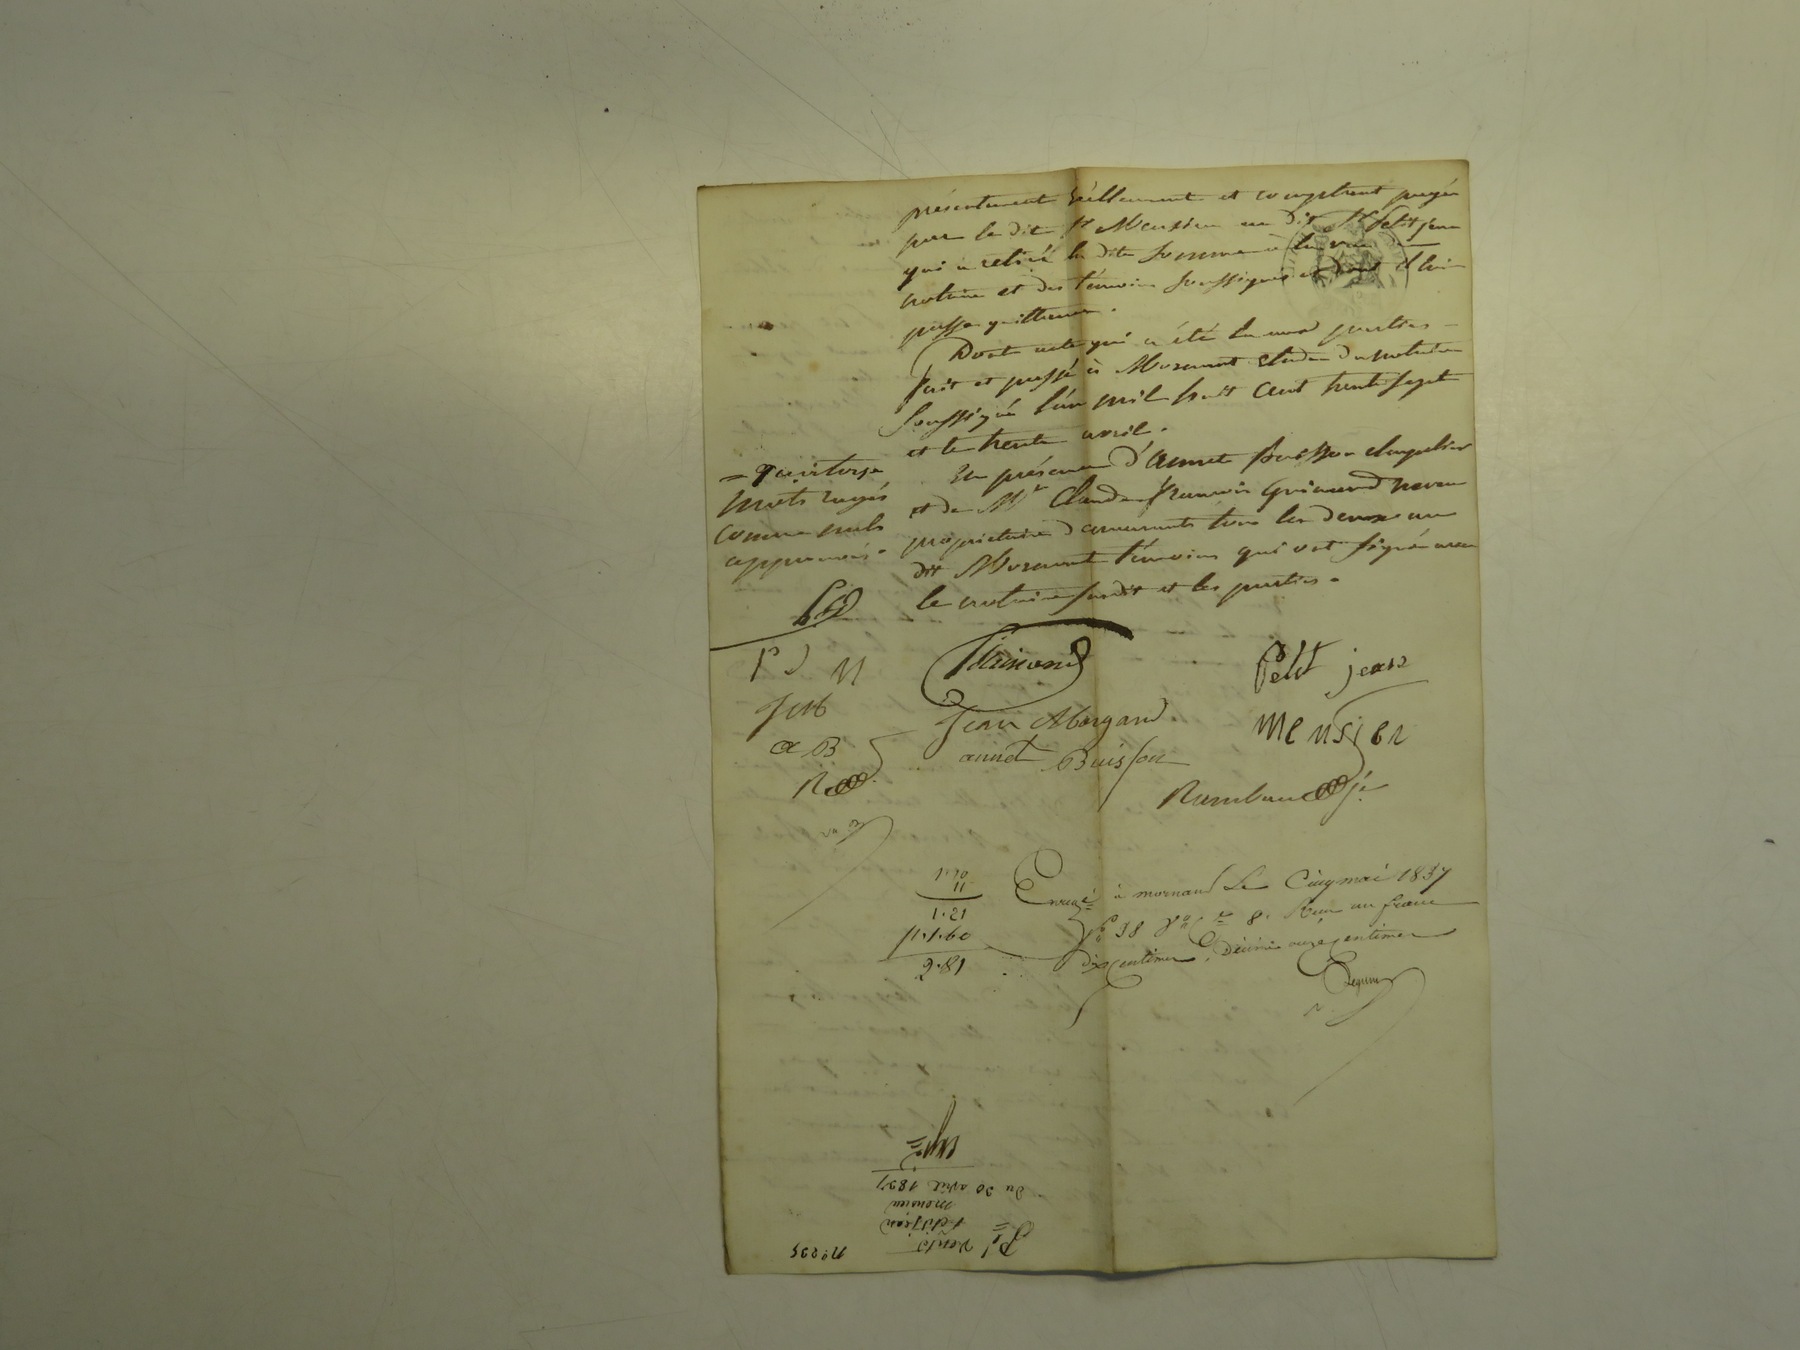 présentement réellement et comptant payée
par le dit Sr Meusier au dit Sr Petit jean
qui a retiré la dite somme à la vue du
notaire et des témoins soussignés et dont il lui
passe quittance.
Dont acte qui a été lu aux parties
fait et passé à Mornant étude du notaire
soussigné l'an mil huit cent trente sept
et le trente avril.
En présence d'annet Buisson
et de Mr Claude françois Grimaud neveu
propriétaire demeurants tous les deux au
dit Mornant témoins qui ont signé avec
le notaire susdit et les parties.
= quatorze
mots rayés
comme nuls
approuvés.
P J M
a B
Petit jean
Jean
Meusier
annet Buisson
1.10
11
1.21
1.60
2.81
à mornant Le Cinq mai 1837
fo 38 Vo Ce 8. Reçu un franc
dix centimes, décime onze centimes
du 30 avril 1837
meusier
Petitjean
Vente
no 235